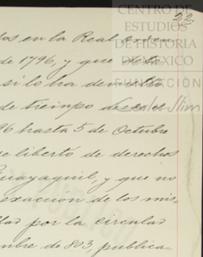 22
CENTRO DE
ESTUDIOS
DE HISTORIA
DE MÉXICO
FUNDACIÓN
Carlos Slim
dos en la Real orden
de 1796, y que
si lo ha
de tiempo
96 hasta 5 de Octubre
libertó de derechos
Guayaquil, y que no
exaccion de los mis
dad por la circular
mbre de 803 publica